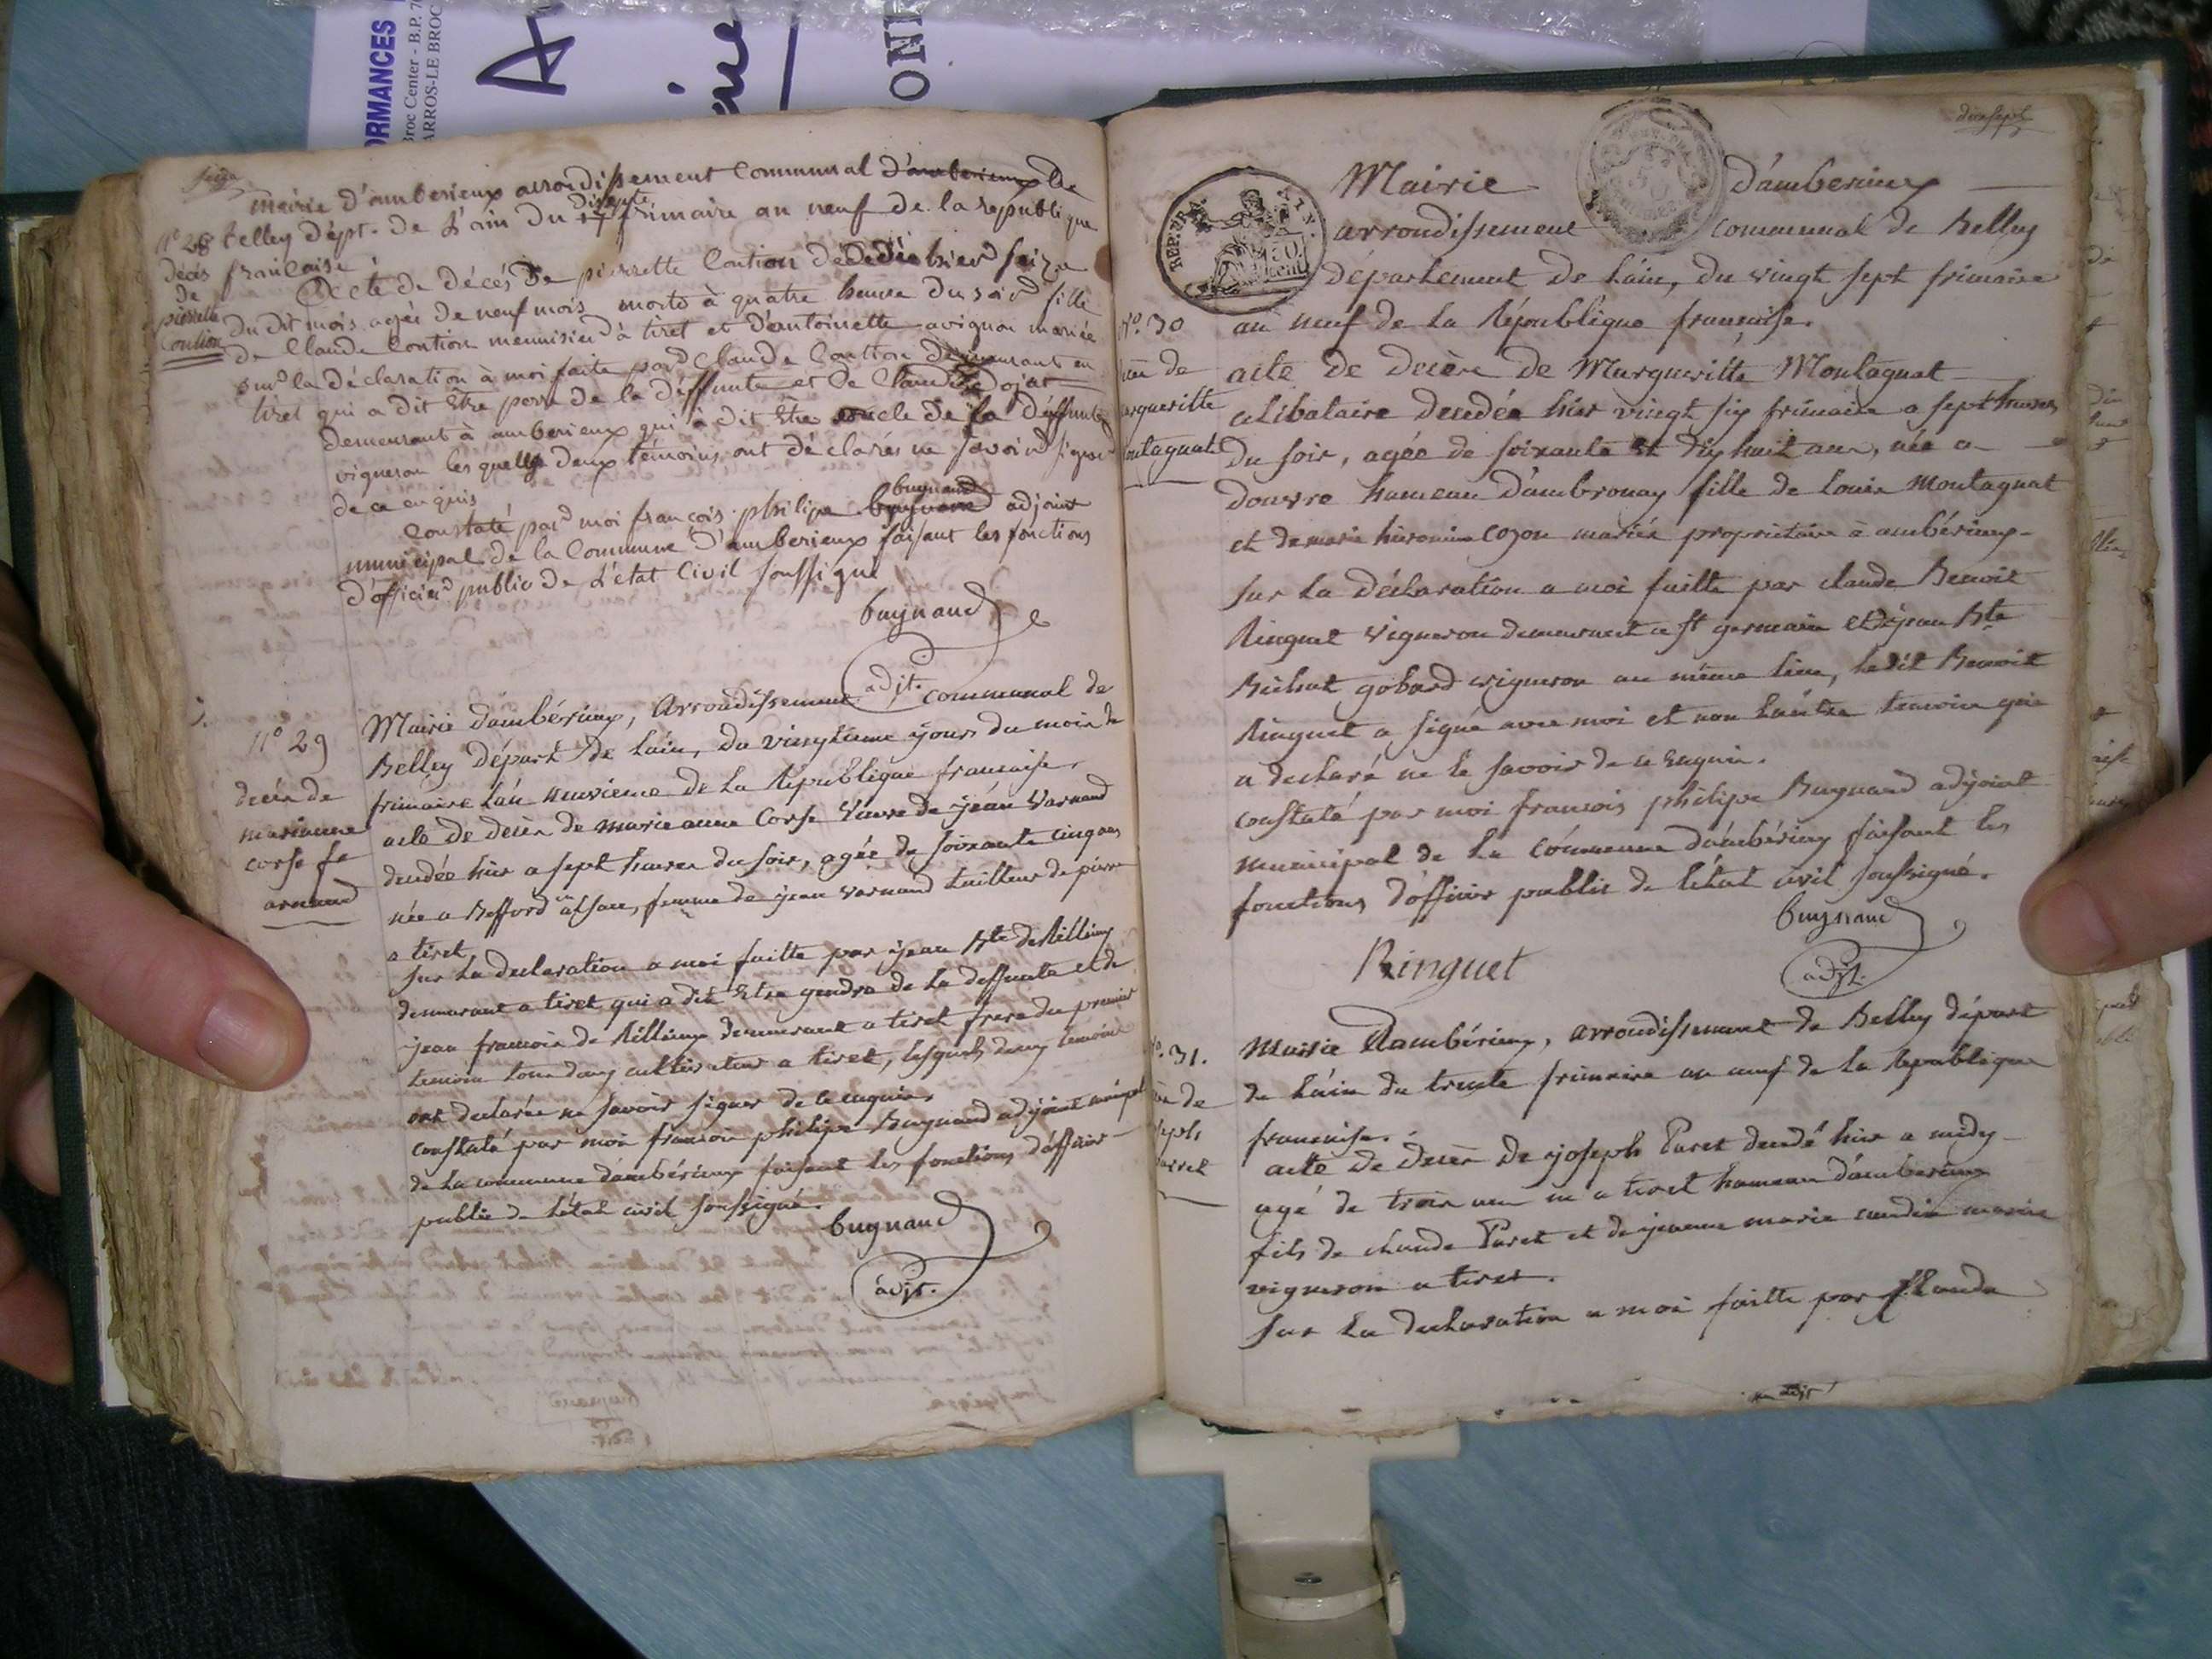 ORMANCES
Broc Center - B.P. 70
ARROS-LE BROC
A
ONF
seize
Mairie d'amberieux arrondissement Communal d'amberieux de
belley dépt. de L'ain du 17 dixsepte frimaire an neuf de la republique
francaise
N° 28
décès
de
pierrette
Contion
Acte de décés de pierrette Contion décédée hier seize
du dit mois agée de neuf mois morte à quatre heure du soir fille
de Claude Contion menuisier à tiret et d'antoinette avignon mariée
sur la déclaration à moi faite par Claude Contion demeurant en
tiret qui a dit être pere de la déffunte et de Claude Dojat
demeurant à amberieux qui à dit être oncle de la déffunte
vigneron les quelles deux témoins ont déclarés ne savoir signer
de ce enquis
Constaté par moi françois philipe buynand adjoint
municipal de la Commune d'amberieux faisant les fonctions
d'officier public de L'etat Civil soussigné
buynand
adjt.
N° 29
décès de
marianne
corse fe
arnaud
Mairie dambérieux, Arrondissement communal de
Belley Départ de lain, du vingtieme jour du mois de
frimaire lan neuvieme de la République francaise.
acte de decès de marie anne Corse Veuve de jéan Varnaud
decedée hier a sept heures du soir, agée de soixante cinq ans
née a Befford en alsace, femme de jean varnaud tailleur de pierre
a tiret
sur la declaration a moi faitte par jean Bte de Rillieux
demeurant a tiret qui a dit etre gendre de la deffunte et de
jean francois de Rillieux demeurant a tiret frere du premier
temoin tous deux cultivateur a tiret, lesquels deux temoins
ont declarés ne savoir signer de ce enquis
constaté par moi francois philipe Buynand adjoint municipal
de la commune dambérieux faisant les fonctions dofficier
public de létat civil soussigné.
buynand
adjt.
dixsept
REP. FRA.
50
cent
Mairie d'amberieux
arrondissement communal de Belley
département de Lain, du vingt sept frimaire
an neuf de la République francaise.
N° 30
de
argueritte
ontagnat
acte de decès de Margueritte Montagnat
celibataire decedée hier vingt six frimaire a sept heures
du soir, agée de soixante et dix huit ans, née a
douvre hameau dambronay fille de louis Montagnat
et de marie hieronime cozon mariés propriétaire à ambérieux
sur la déclaration a moi faitte par claude Benoit
Ringuet vigneron demeurant a st germain et de jean Bte
Bichat gobard vigneron au même lieu, ledit Benoit
Ringuet a signé avec moi et non lautre temoin qui
a declaré ne le savoir de ce enquis.
constaté par moi francois philipe Buynand adjoint
municipal de la commune dambérieux faisant les
fonctions dofficier public de létat civil soussigné.
buynand
Ringuet
adjt.
31.
de
seph
arret
Mairie d'ambérieux, arrondissement de Belley départ
de lain du trente frimaire an neuf de la republique
francaise.
acte de decès de joseph Paret decedé hier a midy
agé de trois ans né a tiret hameau dambérieux
fils de claude Paret et de jeanne marie mariés
vigneron a tiret.
sur la declaration a moi faitte par Claude